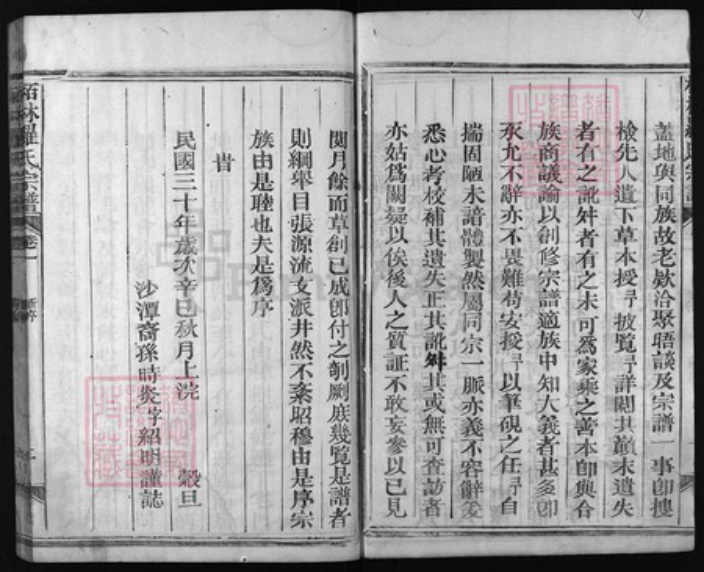 蓋地與同族故老歡洽聚晤談及宗譜一事卽摟
檢先人遺下草本授予披覽予詳閱其巔末遺失
者有之訛舛者有之未可爲家乘之善本卽與合
族商議論以創修宗譜適族中知大義者甚多卽
永允不辭亦不畏難苟安授予以筆硯之任予自
揣固陋未諳體製然屬同宗一脈亦義不容辭爰
悉心考校補其遺失正其訛舛其或無可查訪者
亦姑爲闕疑以俟後人之質証不敢妄參以己見
閱月餘而草創已成卽付之剞劂庶幾覽是譜者
則綱舉目張源流支派井然不紊昭穆由是序宗
族由是睦也夫是爲序
旹
民國三十年歲次辛巳秋月上浣 穀旦
沙潭裔孫時炎 紹明謹誌
栢林羅氏宗譜 卷一